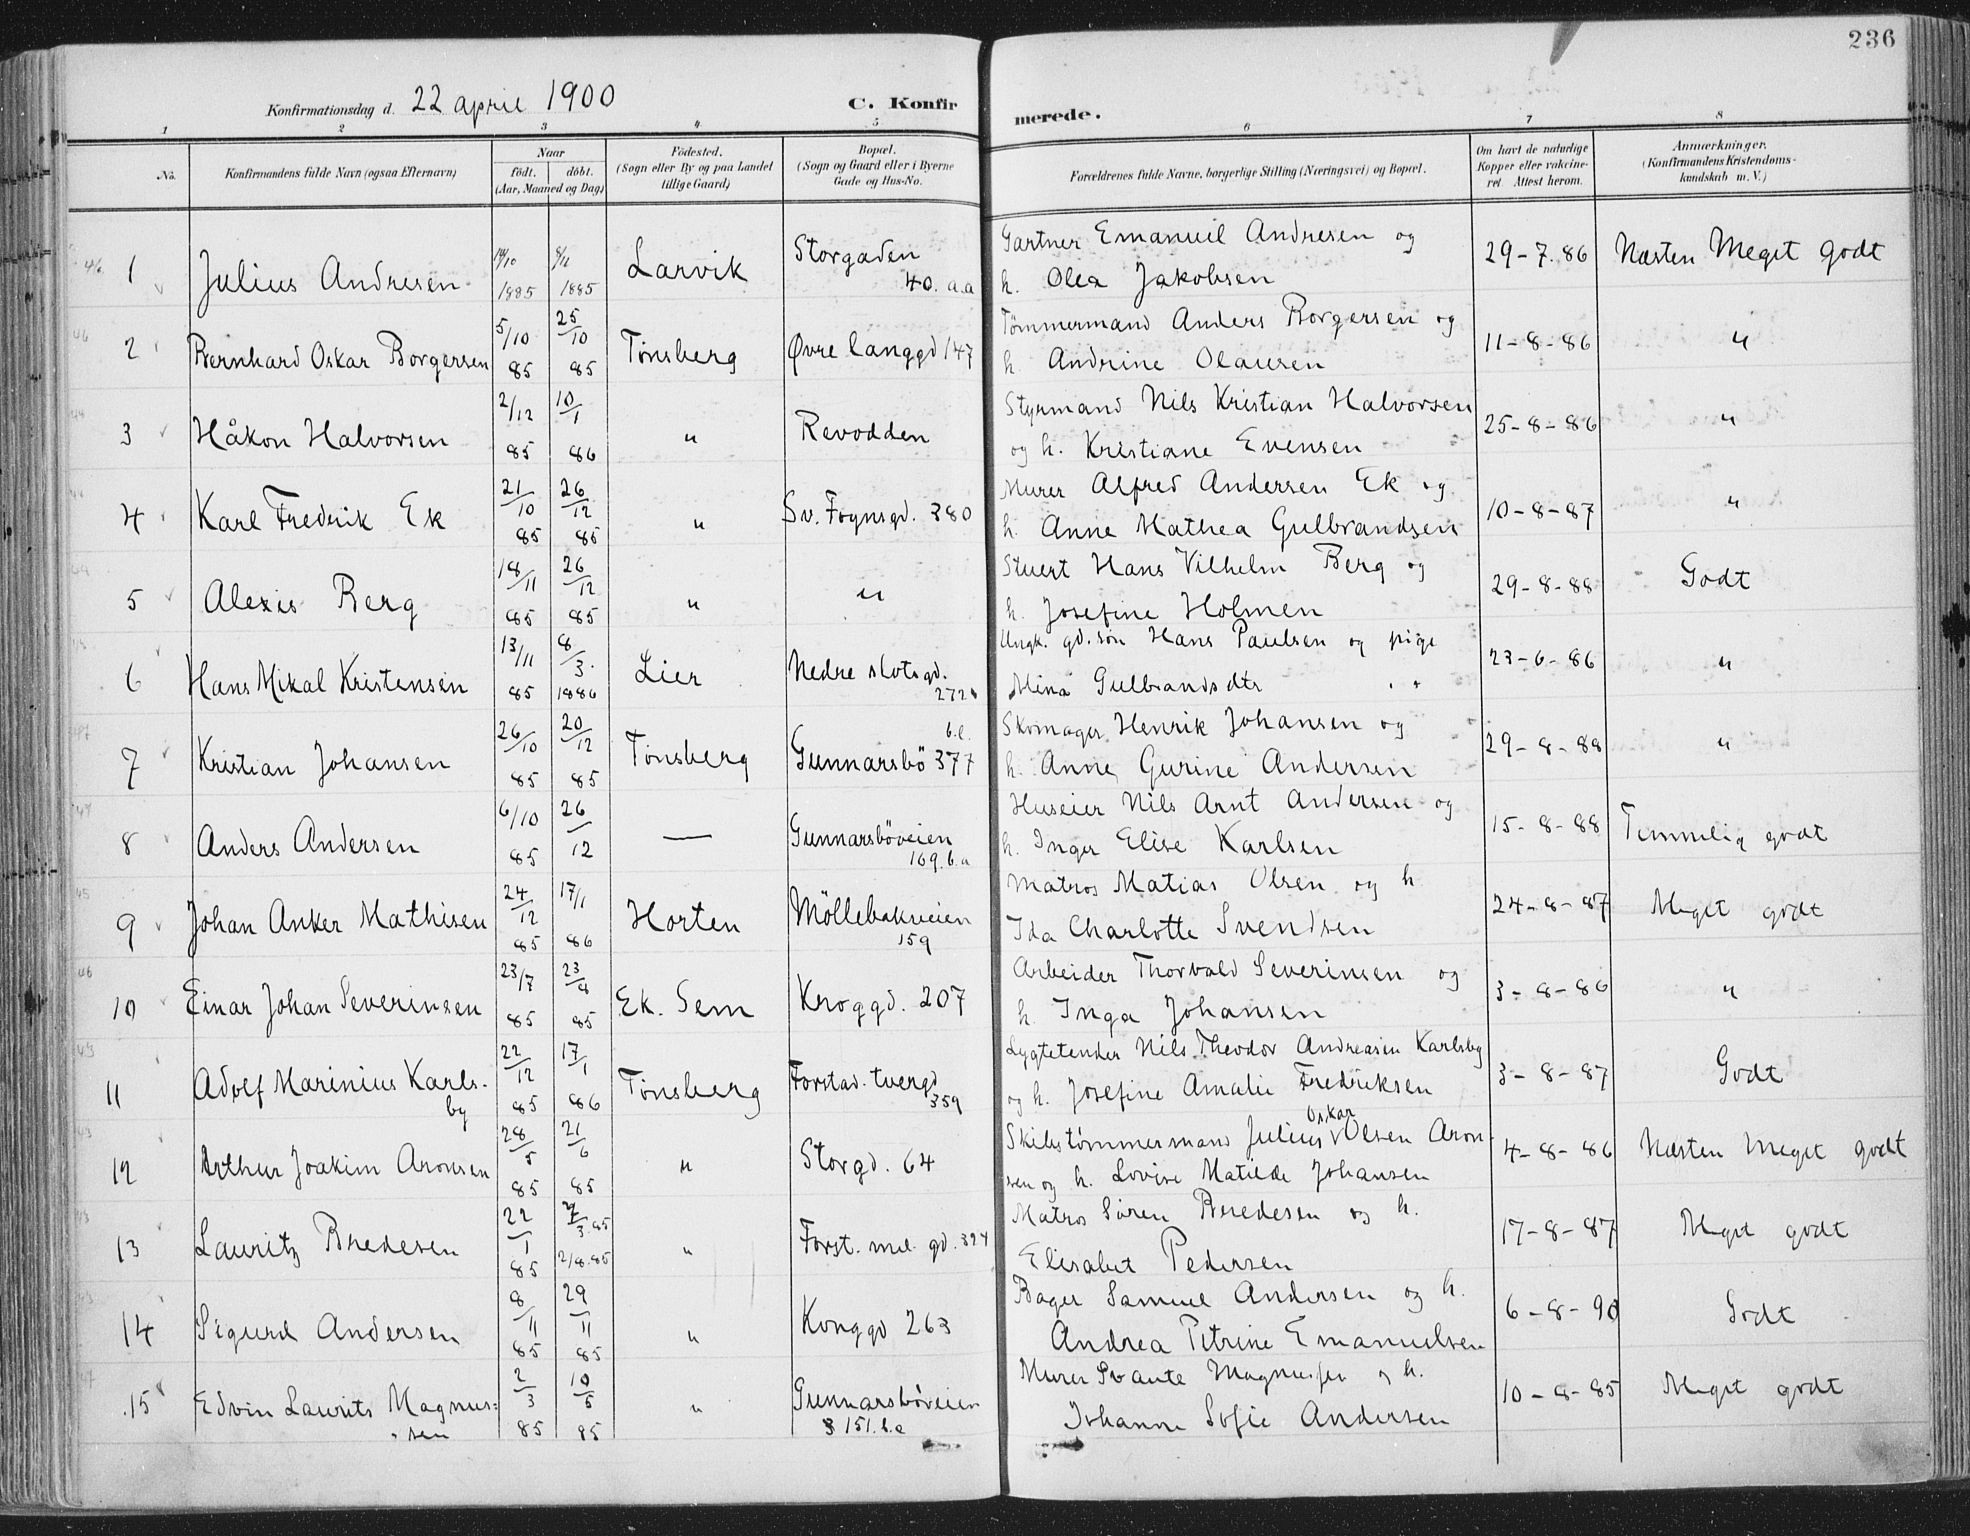 236
Konfirmationsdag d. 22 april 1900 C. Konfirmerede.
1 2 3 4 5 6 7 8
No. Konfirmandens fulde Navn (ogsaa Efternavn) Naar født. døbt. (Aar, Maaned og Dag) Fødested. (Sogn eller By og paa Landet tillige Gaard) Bopæl. (Sogn og Gaard eller i Byerne Gade og Hus-No. Forældrenes fulde Navne, borgerlige Stilling (Næringsvei) og Bopæl. Om havt de naturlige Kopper eller vakcineret. Attest herom. Anmærkninger. (Konfirmandens Kristendomskundskab m. V.)
1 Julius Andresen 14/10 1885 6/12 1885 Larvik Storgaden 40. a.a Gartner Emanuel Andresen og h. Olea Jakobsen 29-7.86 Næsten Meget godt
2 Bernhard Oskar Borgersen 5/10 85 25/10 85 Tønsberg Øvre langgd 147 Tømmermand Anders Borgersen og h. Andrine Olausen 11-8-86 "
3 Håkon Halvorsen 2/12 85 10/1 86 " Revodden Styrmand Nils Kristian Halvorsen og h. Kristiane Evensen 25-8-86 "
4 Karl Fredrik Ek 21/10 85 26/12 85 " Sv. Foynsgd. 380 Murer Alfred Andersen Ek og h. Anne Mathea Gulbrandsen 10-8-87 "
5 Alexis Berg 18/11 85 26/12 85 " " Stuert Hans Vilhelm Berg og h. Josefine Holmen 29-8-88 Godt
6 Hans Mikal Kristensen 13/11 85 8/3. 1886 Lier Nedre slotsgd. 272 Ungk. gd.søn Hans Paulsen og pige Mina Gulbrandsdtr 23-6-86 "
7 Kristian Johansen 26/10 85 20/12 85 Tønsberg Gunnarsbö 377 b.l. Skomager Henrik Johansen og h. Anne Gurine Andersen 29-8-88 "
8 Anders Andersen 6/10 85 26/12 — Gunnarsböveien 169.b.a Huseier Nils Arnt Andersen og h. Inger Elise Karlsen 15-8-88 Temmelig godt
9 Johan Anker Mathisen 24/12 85 17/1 86 Horten Möllebakveien 159 Matros Matias Olsen og h Ida Charlotte Svendsen 24-8-87 Meget godt
10 Einar Johan Severinsen 23/7 85 23/8 85 Ek. Sem Kroggd. 207 Arbeider Thorvald Severinsen og h. Inga Johansen 3-8-86 "
11 Adolf Marinius Karlsby 22/12 85 17/1 86 Tønsberg Forstad. tvergd 359 Lygtetender Nils Theodor Andreasen Karlsby og h. Josefine Amalie Fredriksen 3-8-87 Godt
12 Arthur Joakim Aronsen 28/5 85 21/6 85 " Storgd. 64 Skibstømmermand Julius Oskar Olsen Aronsen og h. Lovise Matilde Johansen 4-8-86 Næsten Meget godt
13 Lauritz Bredesen 22/1 85 3.85 2/8.85 " Forst. mel. gd. 324 Matros Søren Bredesen og h. Elisabet Pedersen 17-8-87 Meget godt
14 Sigurd Andersen 8/11 85 29/11 85 " Konggd 263 Bager Samuel Andersen og h. Andrea Petrine Emanuelsen 6-8-90 Godt
15 Edvin Laurits Magnussen 2/3 85 10/5 85 " Gunnarsbøveien 151.b.a Murer Svante Magnussen og h. Johanne Sofie Andersen 10-8-85 Meget godt